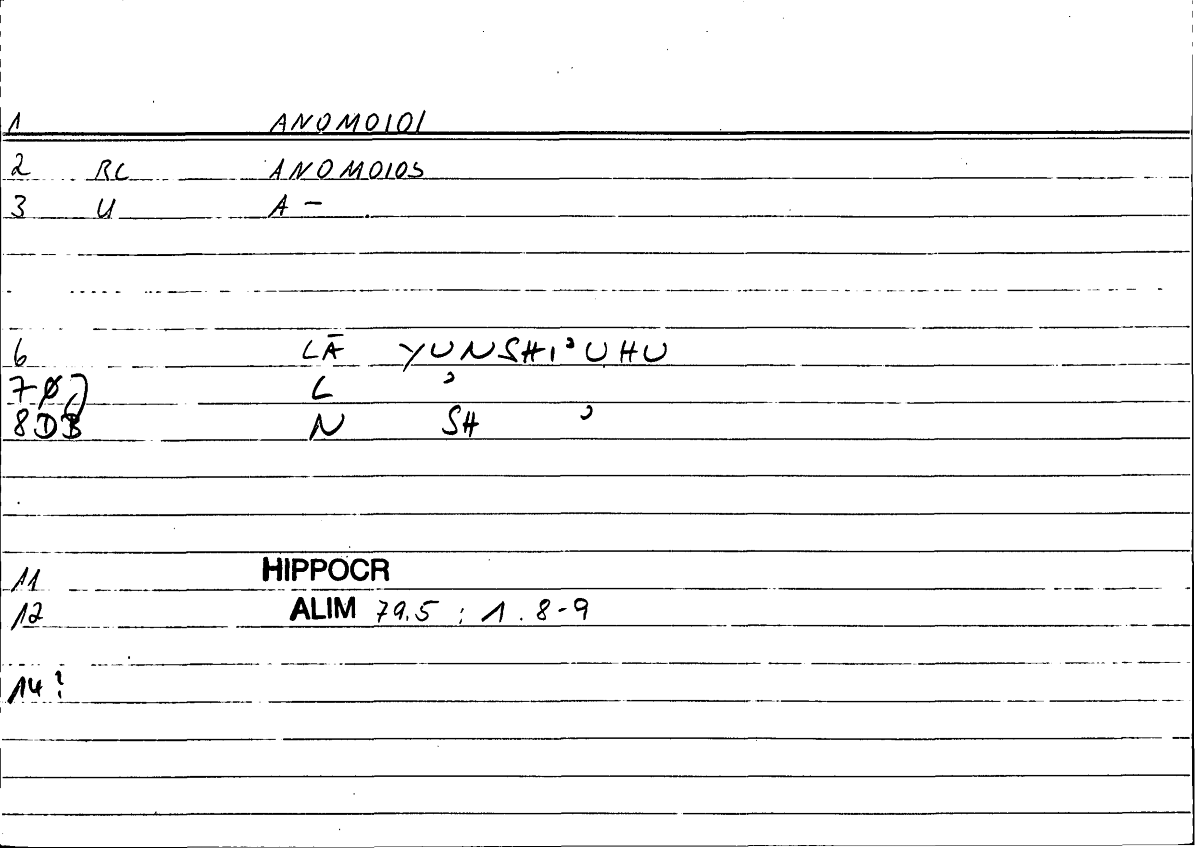 1 ANOMOIOI
2 RC ANOMOIOS
3 U A –
6 LĀ YUNSHI'UHU
7 Ø L '
8 DB N SH '
11 HIPPOCR
12 ALIM 79.5 : 1. 8-9
14 ?